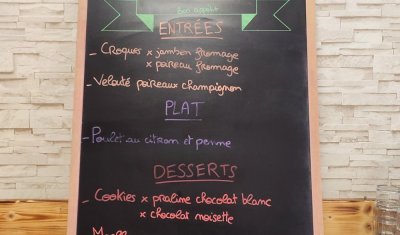 Bon appétit
ENTRÉES
- Croques x jambon fromage
x poireau fromage
- Velouté poireaux champignon
PLAT
- Poulet au citron et penne
DESSERTS
- Cookies x praline chocolat blanc
x chocolat noisette